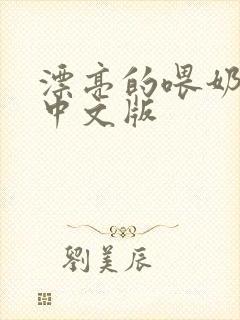 漂亮的喂奶
中文版
劉美辰